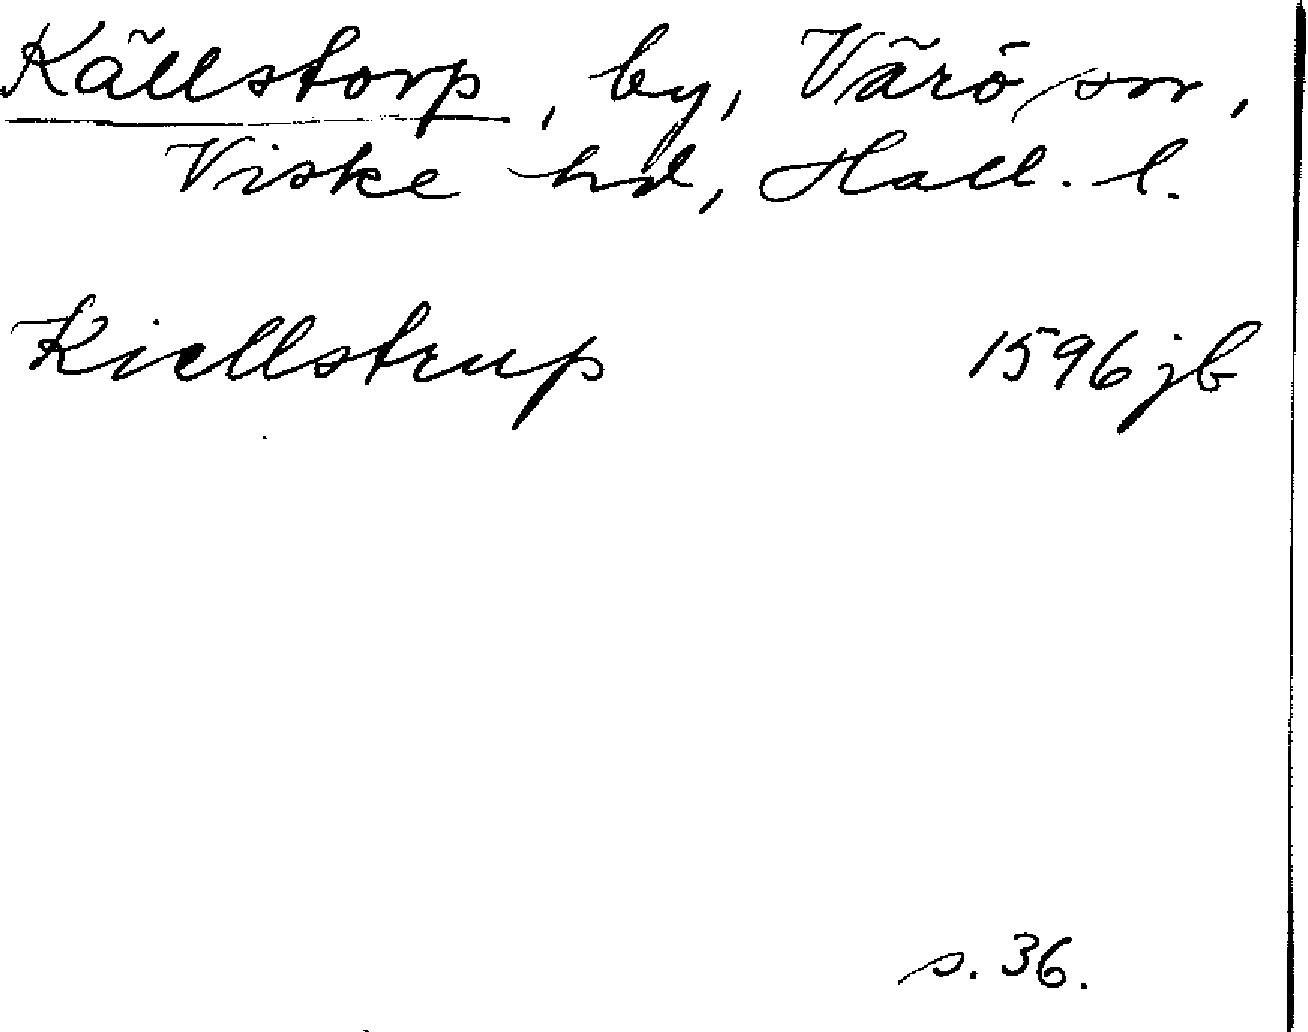 Källstorp, by, Värö sn,
Viske hd, Hall. l.
Kiellstrup 1596 jb
s. 36.